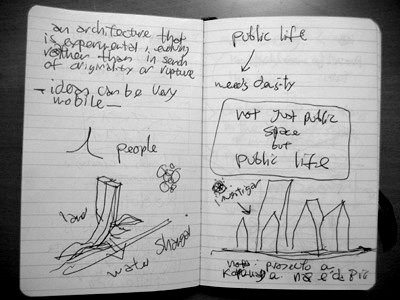 an architecture that
is experimental, evolving
rather than in search
of originality or rupture
- ideas can be very
mobile -
people
land
water
public life
needs density
not just public
space
but
public life